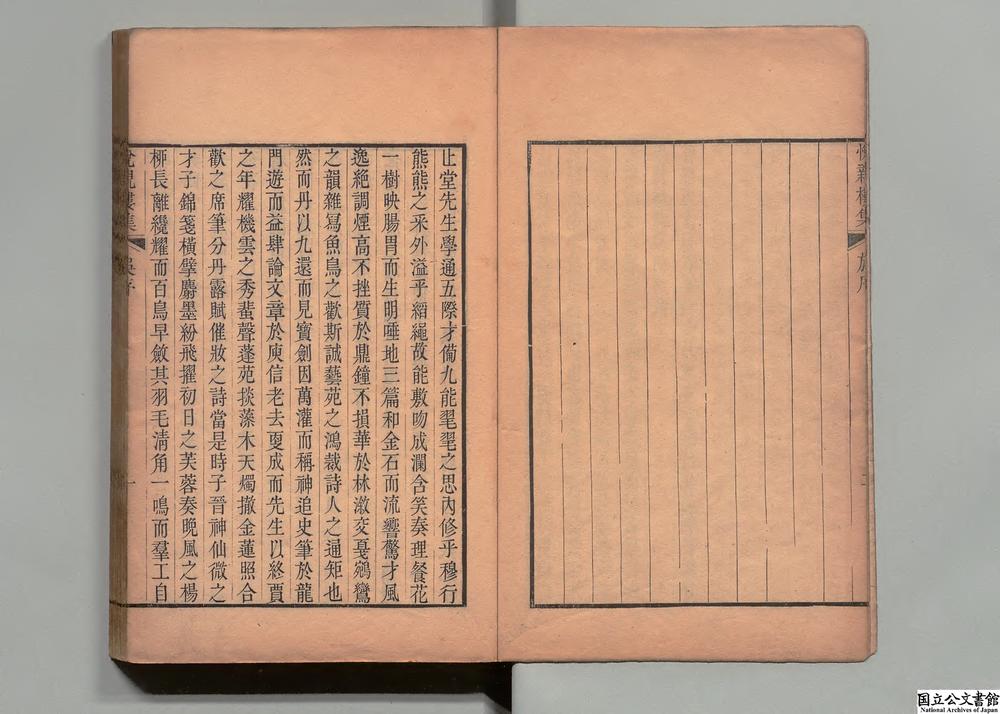 止堂先生學通五際才備九能毣毣之思內修乎穆行
熊熊之采外溢乎縚繩故能敷吻成瀾含笑奏理餐花
一樹映腸胃而生明唾地三篇和金石而流響驚才風
逸絶調煙高不挫質於鼎鐘不損華於林漵交戛鵷鸞
之韻雜寫魚鳥之歡斯誠藝苑之鴻裁詩人之通矩也
然而丹以九還而見寶劍因萬灌而稱神追史筆於龍
門遊而益肆論文章於庾信老去更成而先生以終賈
之年耀機雲之秀蜚聲蓬苑掞藻木天燭撤金蓮照合
歡之席筆分丹露賦催妝之詩當是時子晉神仙微之
才子錦箋橫擘麝墨紛飛擢初日之芙蓉奏晚風之楊
栁長離纔耀而百鳥早斂其羽毛淸角一鳴而羣工自
吳序
一
集
国立公文書館
National Archives of Japan